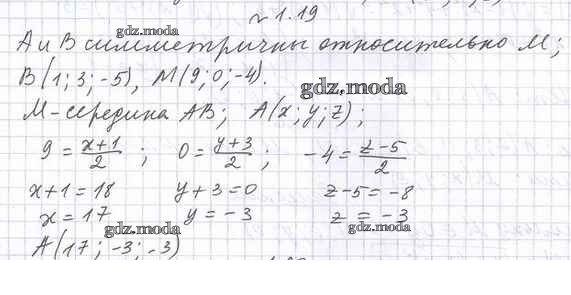 № 1.19
gdz.moda
А и В симметричны относительно М;
В(1; 3; -5), М(9; 0; -4).
gdz.moda
М - середина АВ; А(x; y; z);
9 = (x+1)/2 ; 0 = (y+3)/2 ; -4 = (z-5)/2
x+1 = 18 y+3 = 0 z-5 = -8
x = 17 y = -3 z = -3
gdz.moda gdz.moda
А(17; -3; -3)
gdz.moda